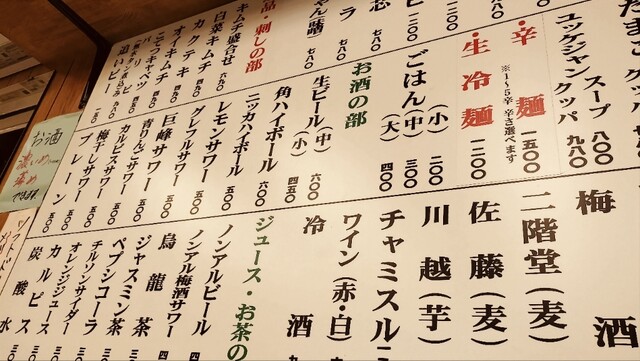 たまご
クッ
スープ 八〇〇
ユッケジャンクッパ 九八〇
・辛麺 一五〇〇
※1〜5辛 辛さ選べます
・生冷麺 一二〇〇
ごはん(小) 二〇〇
(中) 三〇〇
(大) 四〇〇
お酒の部
生ビール(中) 六〇〇
(小) 四五〇
角ハイボール 六〇〇
ニッカハイボール 五〇〇
レモンサワー 五〇〇
グレフルサワー 五〇〇
巨峰サワー 五〇〇
青りんごサワー 五〇〇
カルピスサワー 五〇〇
梅干しサワー 五〇〇
プレーン 五〇〇
芯
ラ 七八〇
ゃん味噌 七八〇
品・刺しの部
キムチ盛合せ 六九〇
白菜キムチ
カクテキ
オイキムチ
こぞっキムチ
キャベツ
追いビー
梅酒
二階堂(麦)
佐藤(麦)
川越(芋)
チャミスル
ワイン(赤・白)
冷酒
ジュース・お茶の
ノンアルビール
ノンアル梅酒サワー
烏龍茶
ジャスミン茶
ペプシコーラ
チルソンサイダー
オレンジジュース
カルピス
炭酸水
お酒
濃いめ
薄め
できます